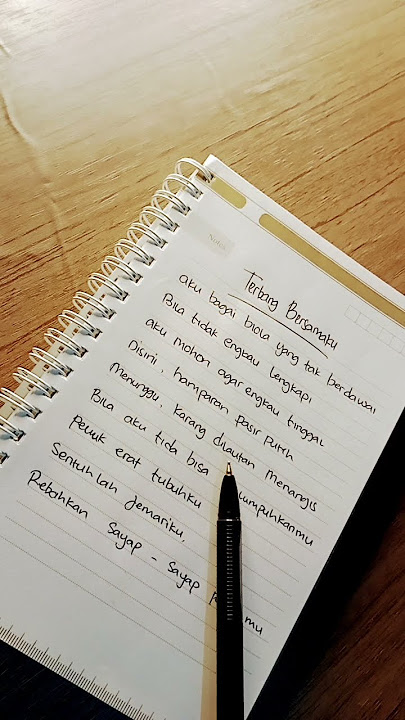 Notes
Terbang Bersamaku
aku bagai biola yang tak berdawai
Bila tidak engkau lengkapi
aku mohon agar engkau tinggal
Disini, hamparan pasir putih
Menunggu, karang dilautan menangis
Bila aku tida bisa lumpuhkanmu
Peluk erat tubuhku
Sentuhlah Jemariku,
Rebahkan Sayap - Sayap